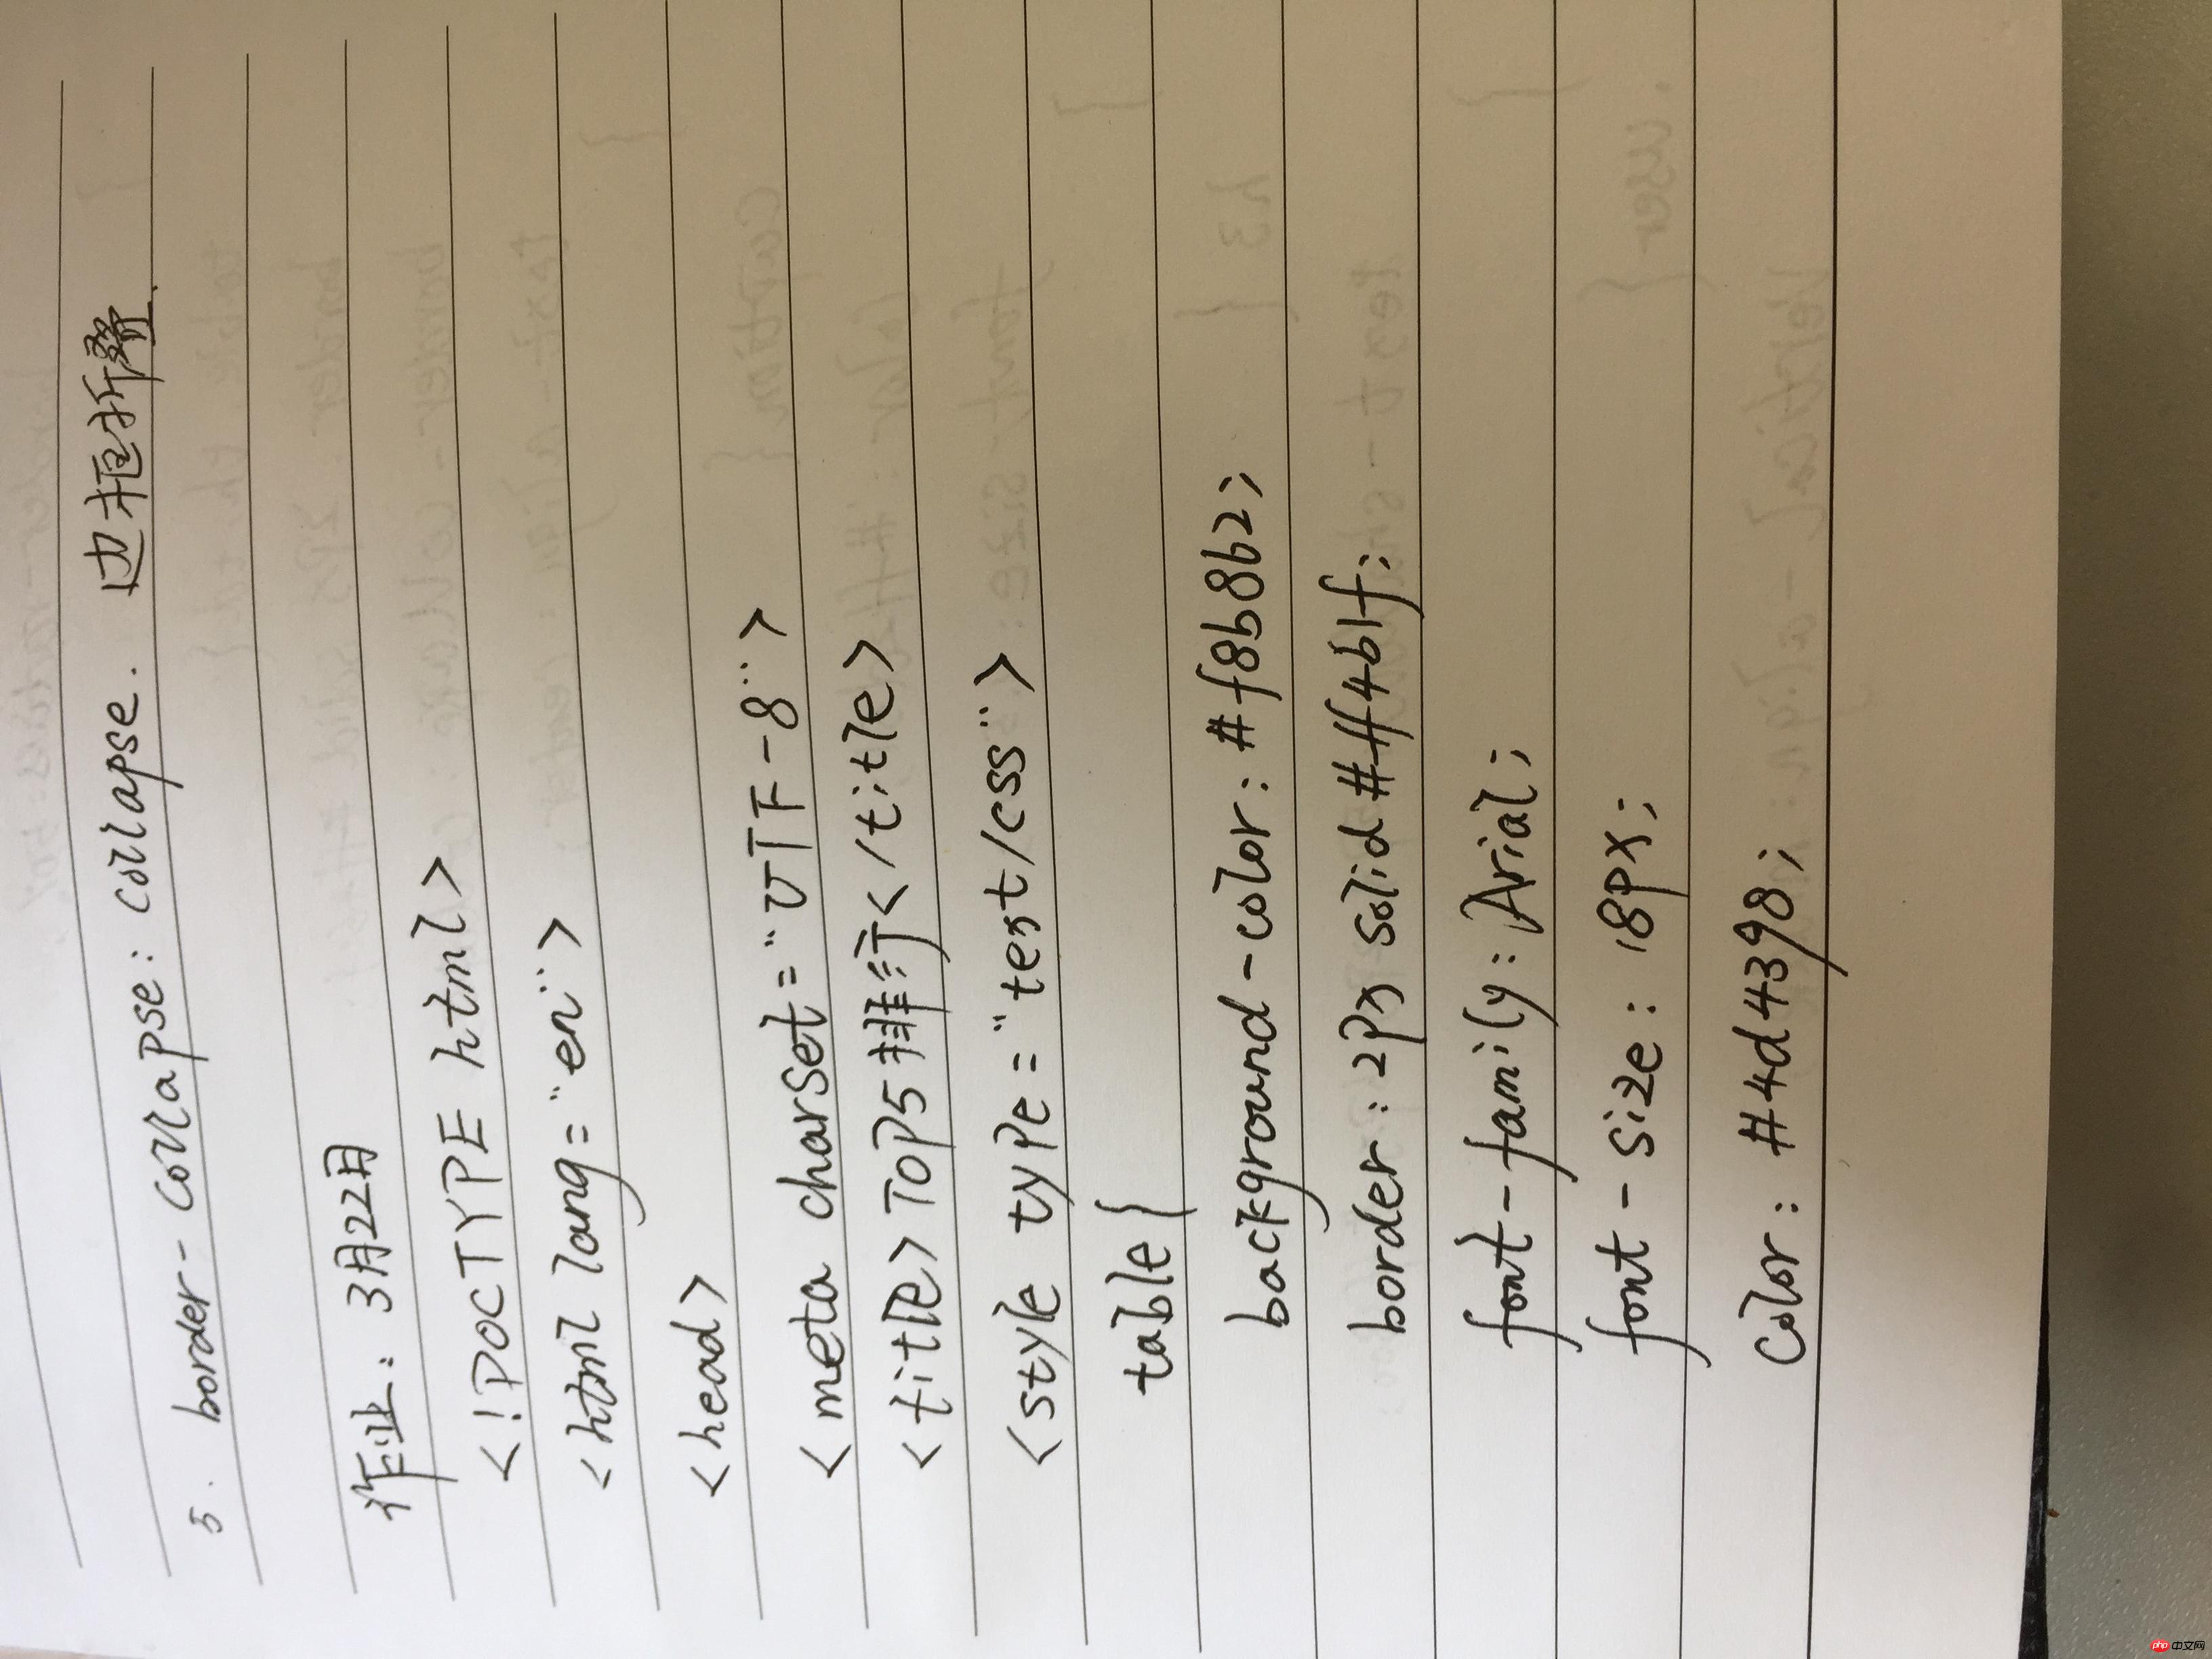 5. border-collapse: collapse. 边框折叠.
作业: 3月22日
<!DOCTYPE html>
<html lang="en">
<head>
<meta charset="UTF-8">
<title>Top5排行</title>
<style type="text/css">
table{
background-color: #f8b8b2;
border: 2px solid #ff4b1f;
font-family: Arial;
font-size: 18px;
color: #4d4398;
php 中文网